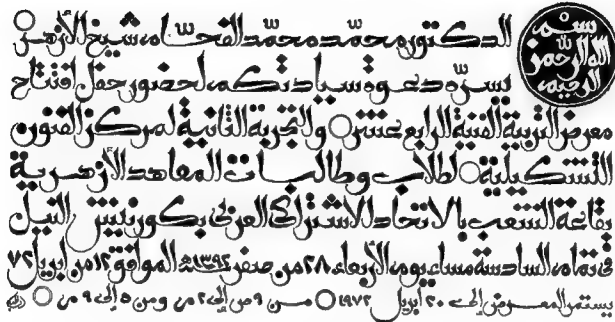 بسم الله الرحمن الرحيم
الدكتور محمد محمد الفحام شيخ الأزهر
يسره دعوة سيادتكم لحضور حفل افتتاح
معرض التربية الفنية الرابع عشر والتجربة الثانية لمركز الفنون
التشكيلية لطلاب وطالبات المعاهد الأزهرية
بقاعة الشعب بالاتحاد الاشتراكى العربى بكورنيش النيل
فى تمام السادسة مساء يوم الأربعاء ٢٨ من صفر ١٣٩٢ هـ الموافق ١٢ من ابريل ٧٢
يستمر المعرض إلى ٢٠ أبريل ١٩٧٢ من ٩ ص إلى ٢ م ومن ٥ إلى ٩ م